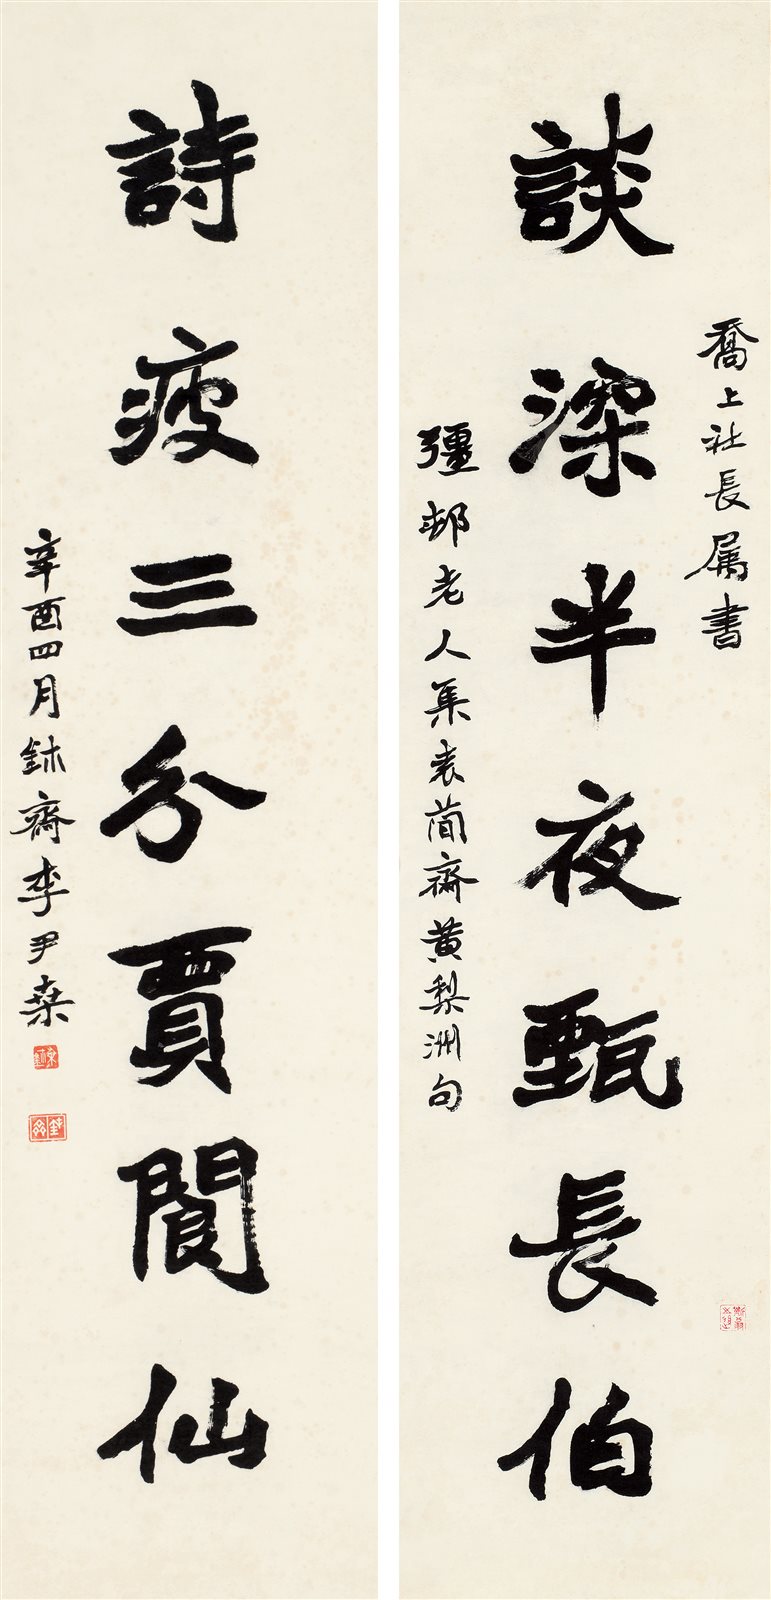 喬上社長属書
談深半夜甄長伯
彊邨老人集袁簡齋黄梨洲句
詩瘦三分賈閬仙
辛酉四月鉥齋李尹桑